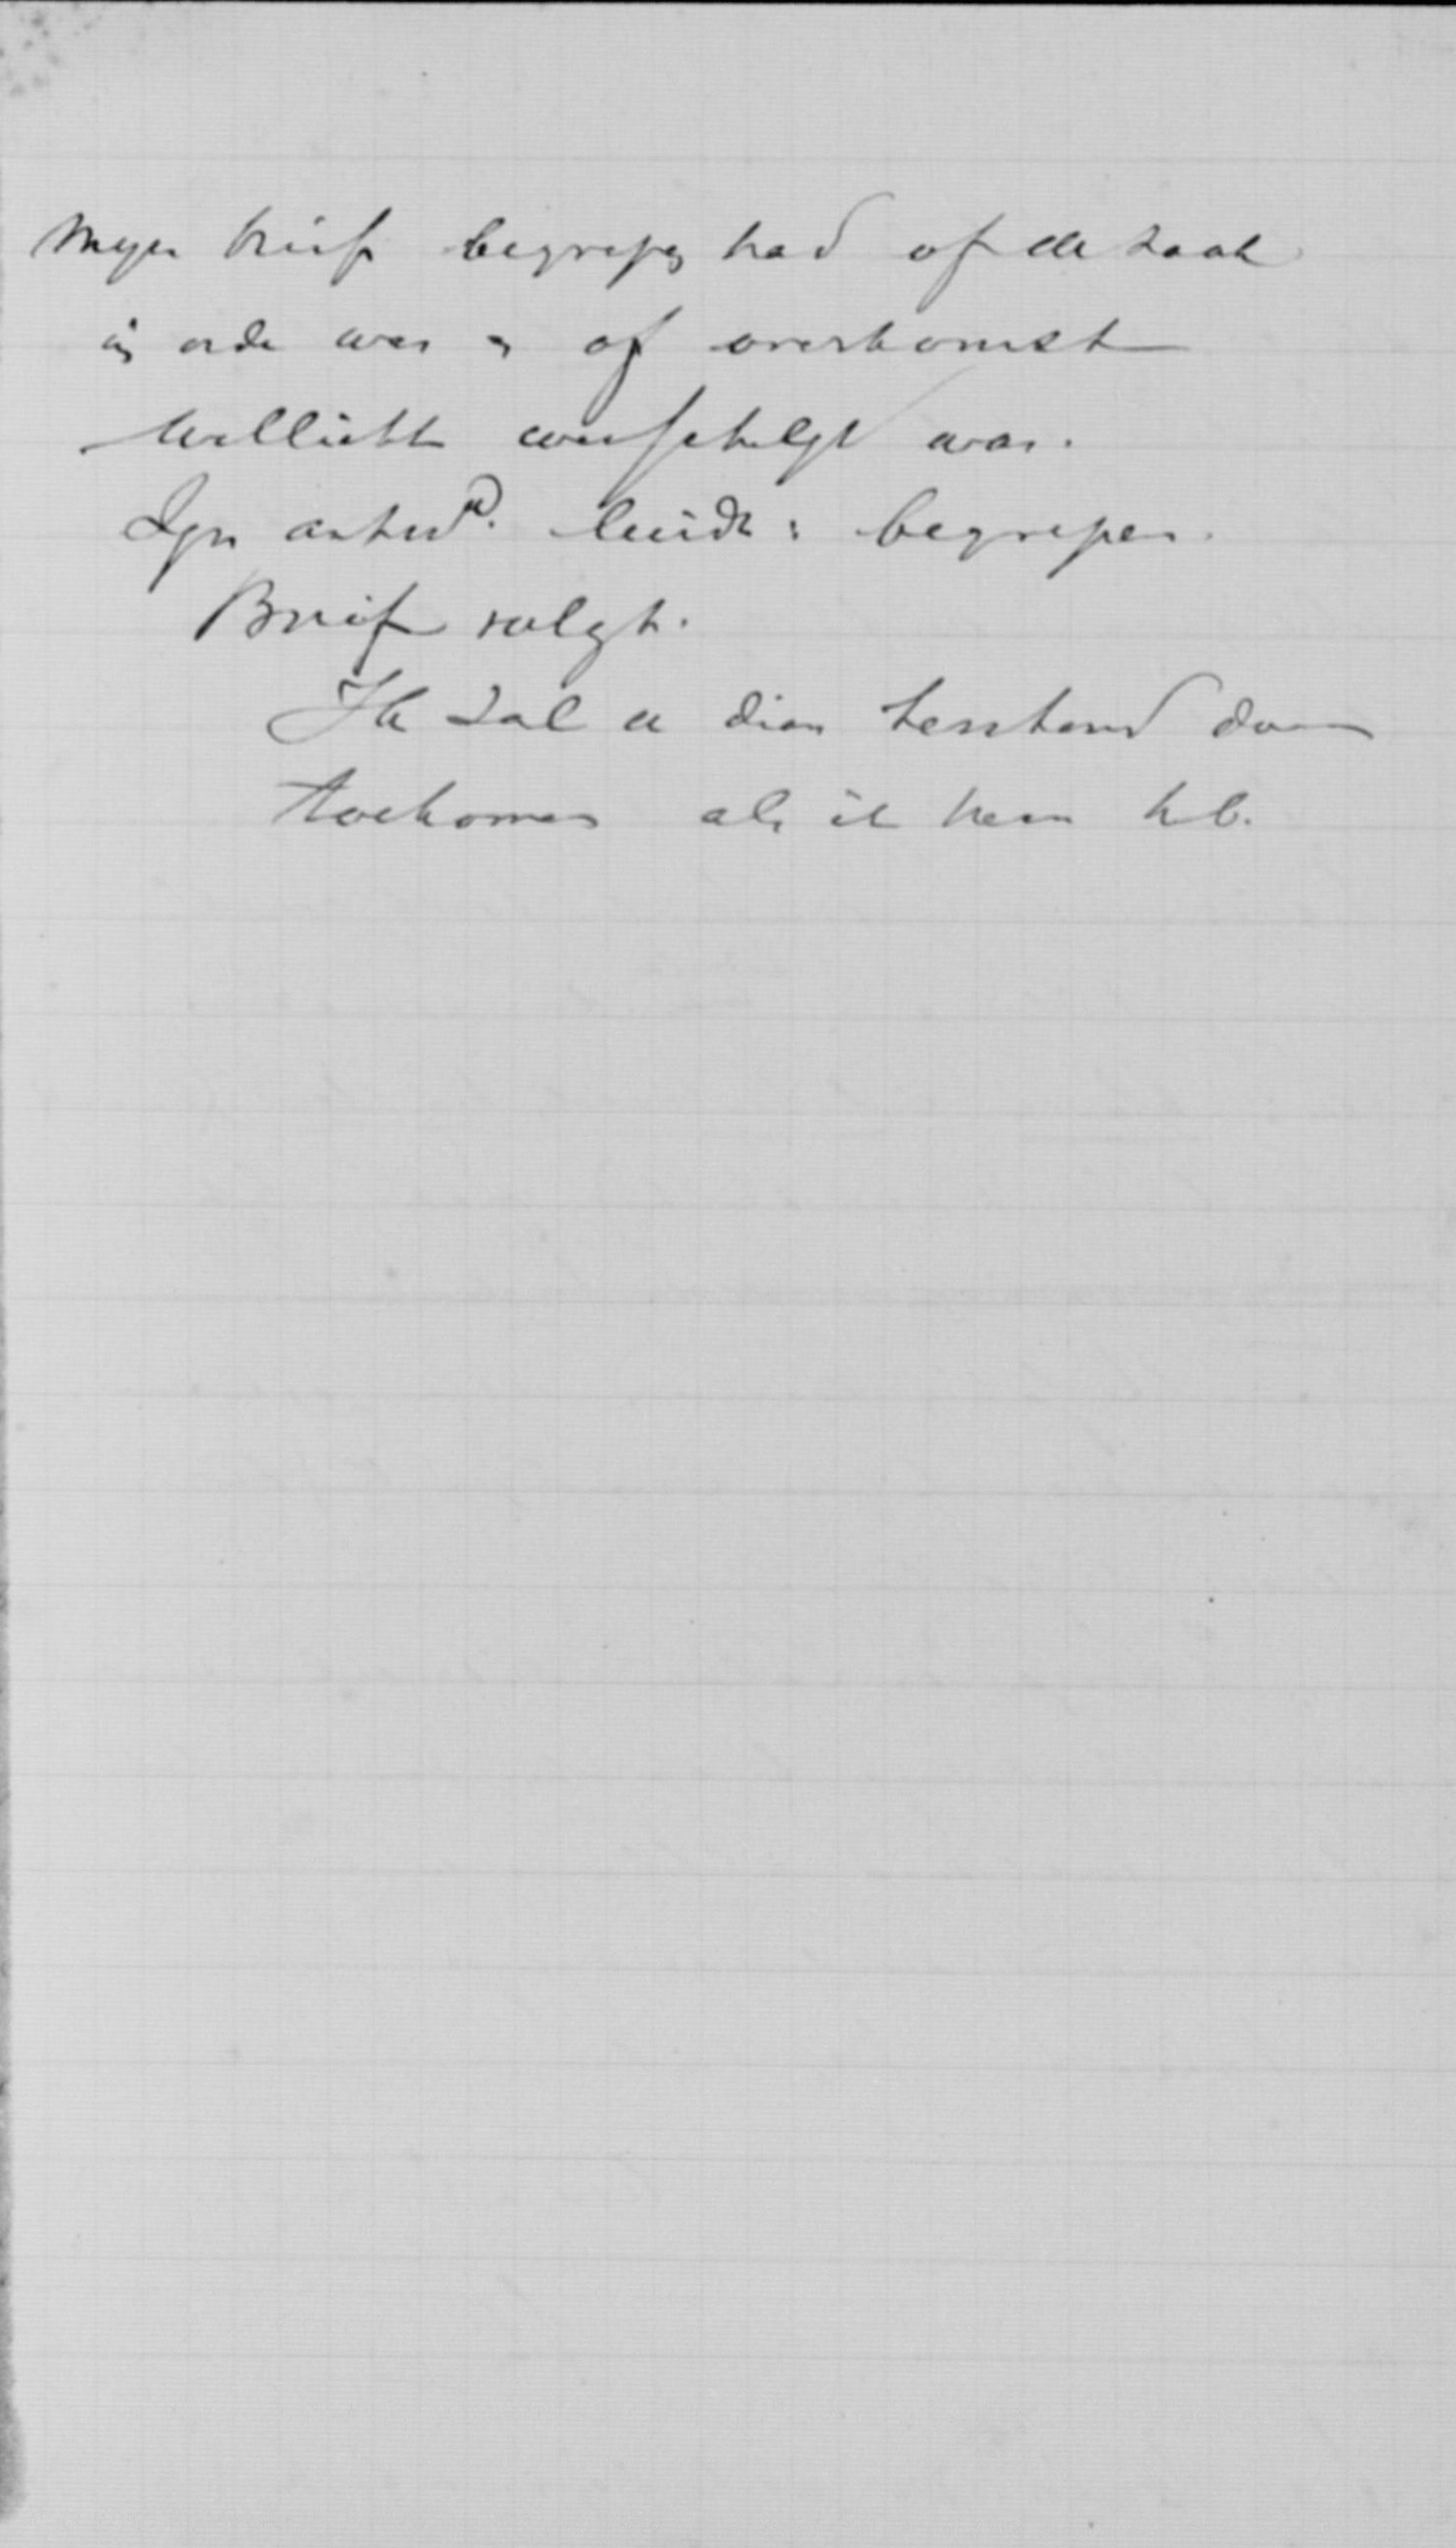 mijn brief begrepen had of de zaak
in orde was en of overkomst
wellicht wenschelijk was.
Zijn antwd. luidt: begrepen.
Brief volgt.
Ik zal u dien terstond doen
toekomen als ik hem heb.